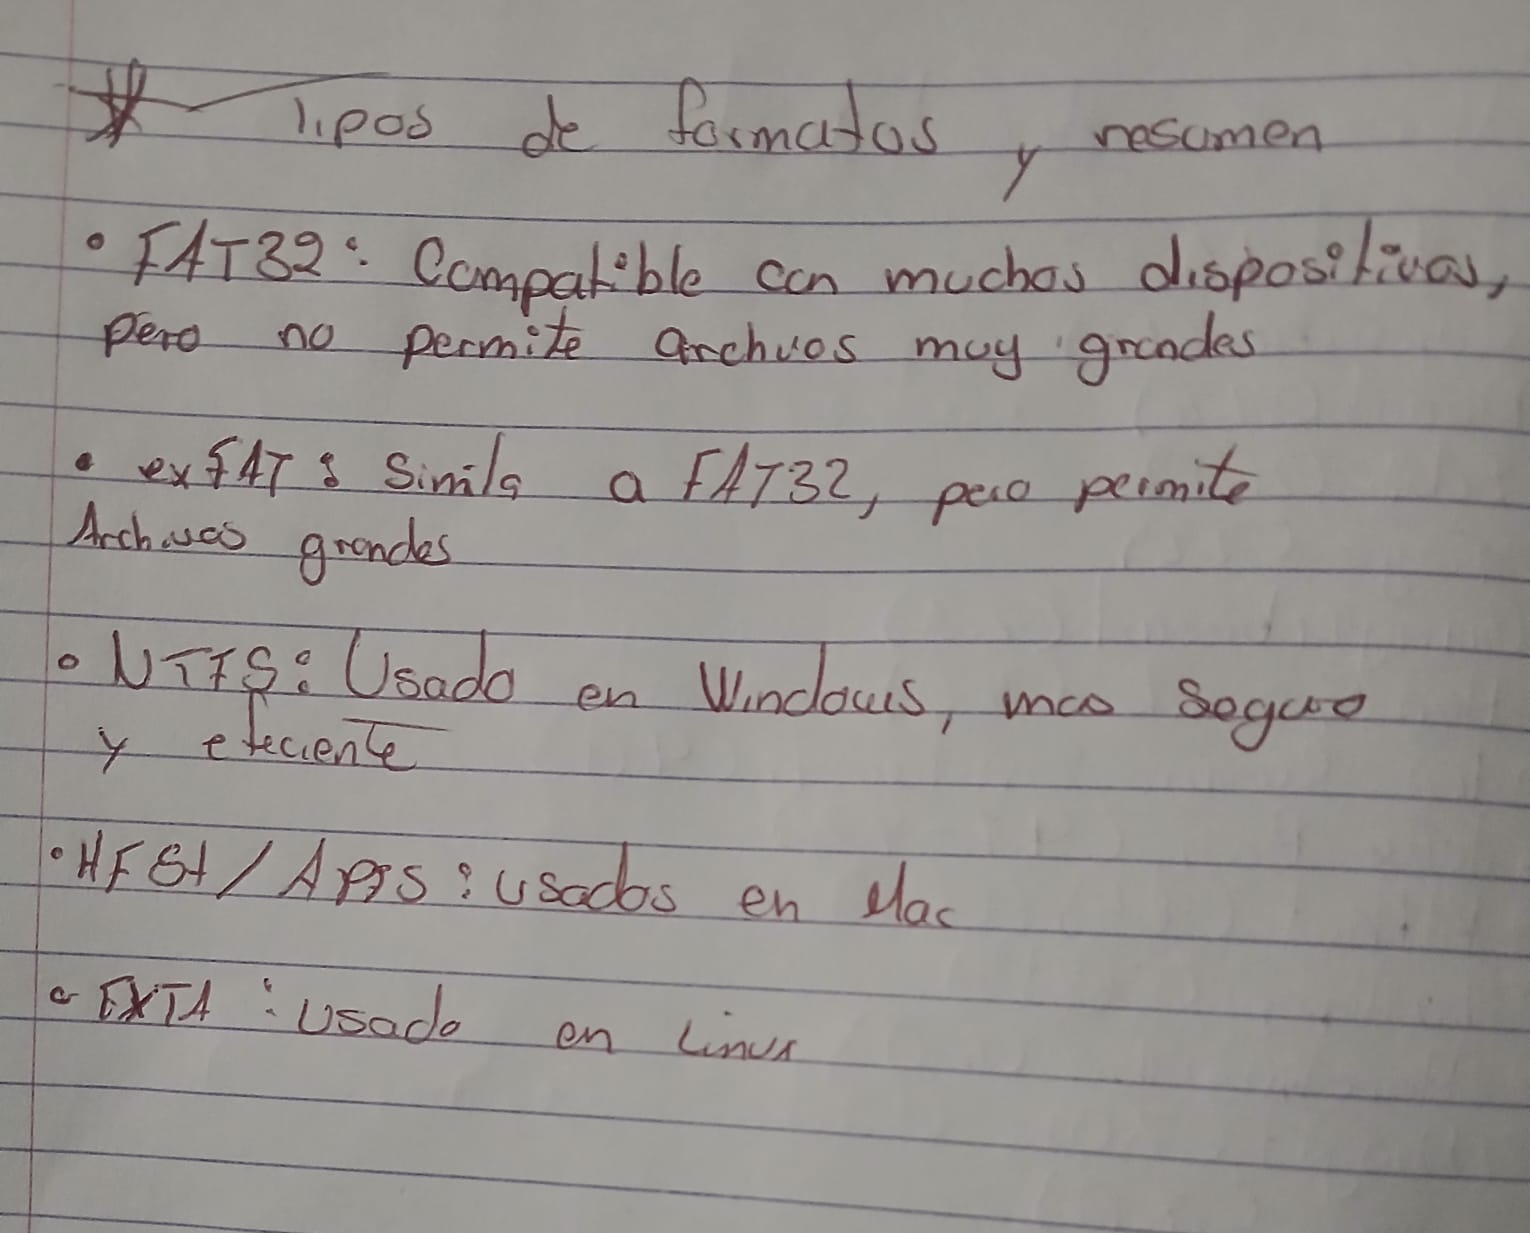 Tipos de formatos y resumen
• FAT32: Compatible con muchos dispositivos,
pero no permite archivos muy grandes
• exFAT: Simila a FAT32, pero permite
Archivos grandes
• NTFS: Usado en Windows, mas Seguro
y eficiente
• HFS+ / APFS: usados en Mac
• EXT4: usado en Linux